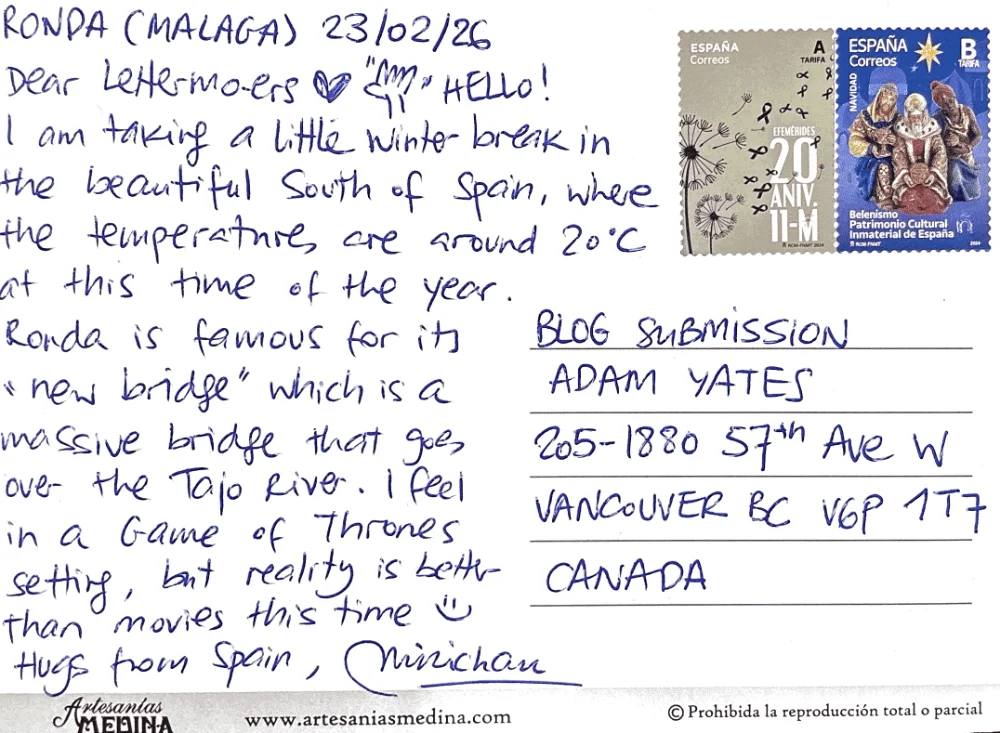 RONDA (MALAGA) 23/02/26
Dear Lettermo-ers ♥ " " HELLO!
I am taking a little winter break in
the beautiful South of Spain, where
the temperatures are around 20°C
at this time of the year.
Ronda is famous for its
"new bridge" which is a
massive bridge that goes
over the Tajo River. I feel
in a Game of Thrones
setting, but reality is better
than movies this time
Hugs from Spain, Minichan
ESPAÑA
Correos
A
TARIFA
EFEMÉRIDES
20
ANIV.
11-M
RCM-FNMT 2024
ESPAÑA
Correos
B
TARIFA
NAVIDAD
Belenismo
Patrimonio Cultural
Inmaterial de España
RCM-FNMT
2024
BLOG SUBMISSION
ADAM YATES
205-1880 57th Ave W
VANCOUVER BC V6P 1T7
CANADA
Artesanías
MEDINA
www.artesaniasmedina.com
© Prohibida la reproducción total o parcial